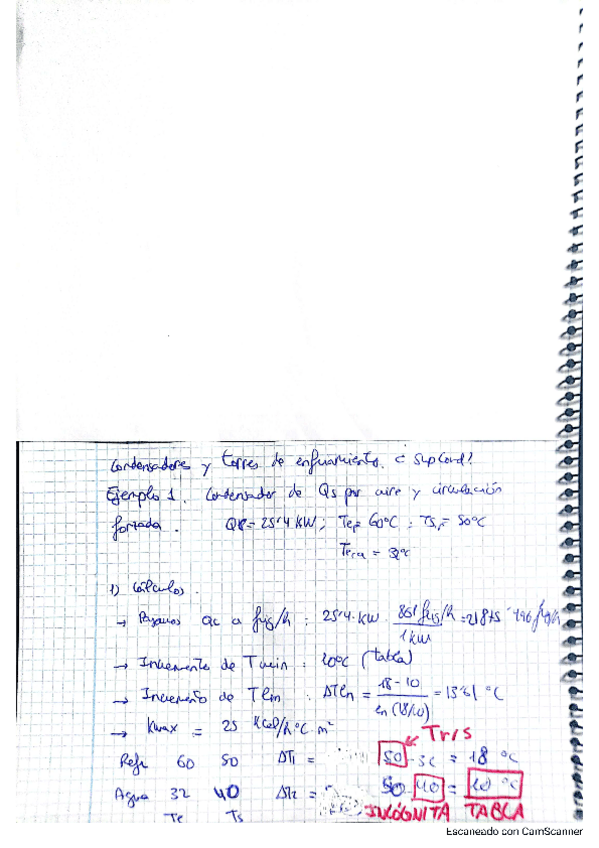 Condensadores y torres de enfriamiento. ¿ SupCond?
Ejemplo 1. Condensador de Qs por aire y circulación
forzada. = 25'4 KW; Ter= 60°C; TSr= 50°C
= 32°C
1) Cálculos.
→ Pasamos Qc a frig/h : 25'4 KW · 861 frig/h / 1 KW = 21875'496 frig/h
→ Incremento de Tmin : 10°C (tabla)
→ Incremento de Tlm : ΔTln = 18-10 / ln (18/10) = 13'61 °C
→ Kmax = 25 Kcal/h°C m²
Tr/s
Refr 60 50 ΔT1 = 50 - 32 = 18 °C
Agua 32 40 ΔT2 = 50 - 40 = 10 °C
Te Ts INCÓGNITA TABLA
Escaneado con CamScanner